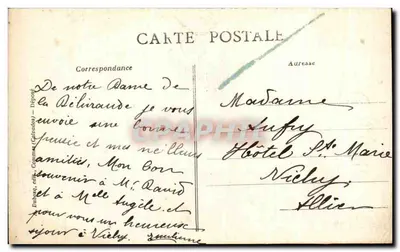 CARTE POSTALE
Correspondance
Adresse
De notre Dame de
la Délivrande je vous
envoie une bonne
pensée et mes meilleurs
amitiés, Mon bon
souvenir à Mr David
et à Melle Angèle et
pour vous un heureux
séjour à Vichy.
Madame
Hôtel Ste Marie
Vichy
Allier